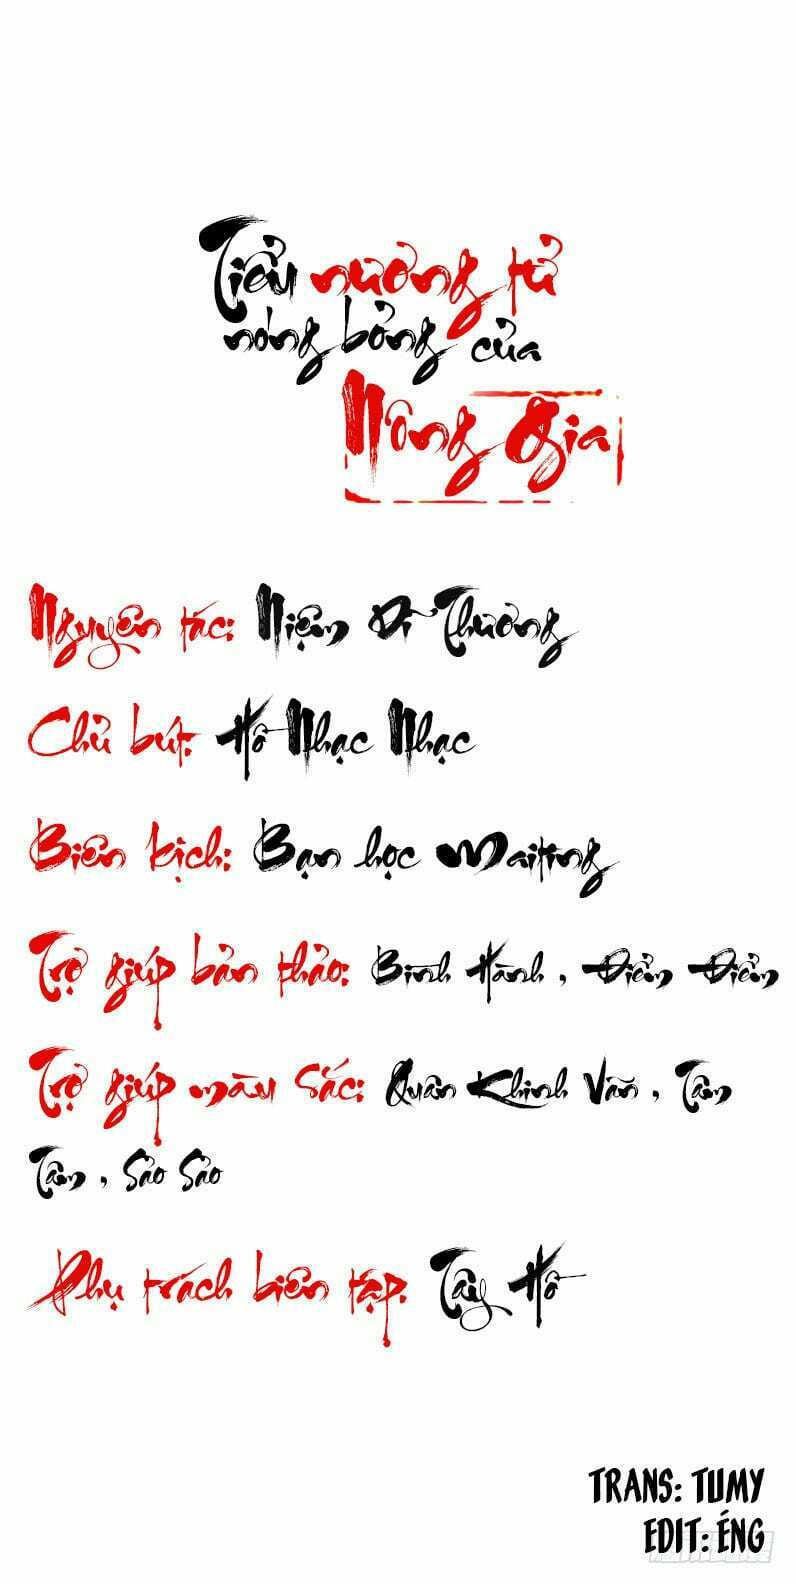 Tiểu nương tử
nóng bỏng của
Nông Gia
Nguyên tác: Niệm Dĩ Thương
Chủ bút: Hồ Nhạc Nhạc
Biên kịch: Bạn học Maiting
Trợ giúp bản thảo: Bình Hành , Điểm Điểm
Trợ giúp màu sắc: Quân Khinh Vãn , Tâm
Tâm , Sảo Sảo
Phụ trách biên tập: Tây Hồ
TRANS: TUMY
EDIT: ÉNG